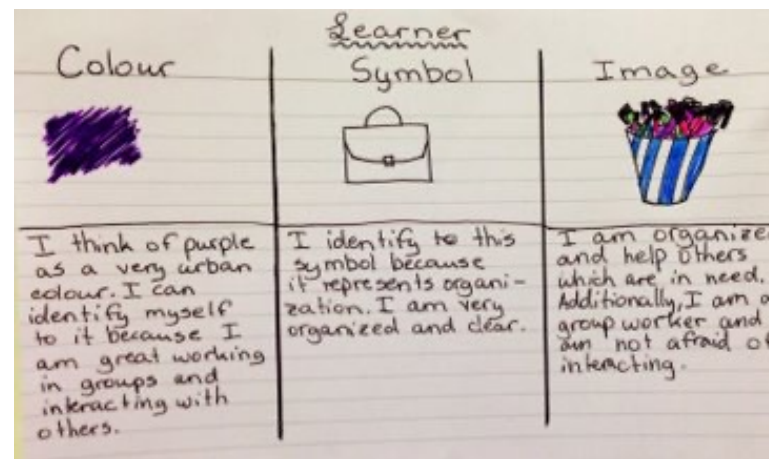 Learner
Colour
Symbol
Image
I think of purple
as a very urban
colour. I can
identify myself
to it because I
am great working
in groups and
interacting with
others.
I identify to this
symbol because
it represents organi-
zation. I am very
organized and clear.
I am organize
and help others
which are in need.
Additionally, I am a
group worker and
am not afraid of
interacting.